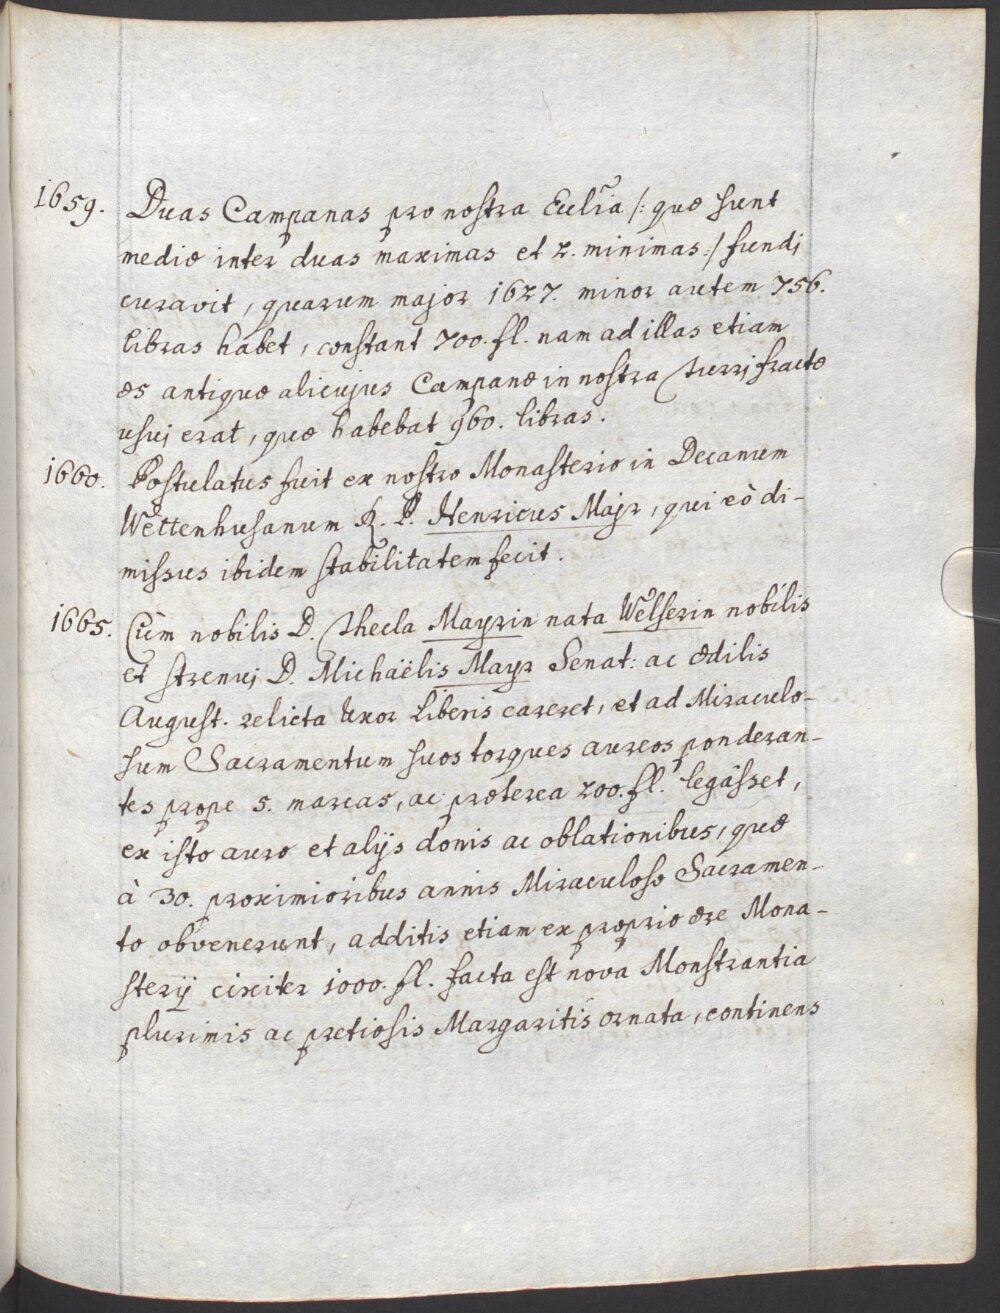 1659. Duas Campanas pro nostra Ecclia /: quæ sunt
mediæ inter duas maximas et 2. minimas :/ fundi
curavit, quarum major 1627. minor autem 756.
libras habet, constant 700. fl. nam ad illas etiam
æs antiquæ alicujus Campanæ in nostra turri fractæ
usui erat, quæ habebat 960. libras.
1660. Postulatus fuit ex nostro Monasterio in Decanum
Wettenhusanum R. P. Henricus Majr, qui eò di-
missus ibidem stabilitatem fecit.
1665. Cùm nobilis D. Thecla Mayrin nata Welserin nobilis
et strenui D. Michaëlis Mayr Senat: ac ædilis
August. relicta Uxor Liberis careret, et ad Miraculo-
sum Sacramentum suos torques aureos ponderan-
tes prope 5. marcas, ac præterea 200. fl. legâsset,
ex isto auro et alijs donis ac oblationibus, quæ
à 30. proximioribus annis Miraculoso Sacramen-
to obvenerunt, additis etiam ex proprio ære Mona-
sterij circiter 1000. fl. facta est nova Monstrantia
plurimis ac pretiosis Margaritis ornata, continens